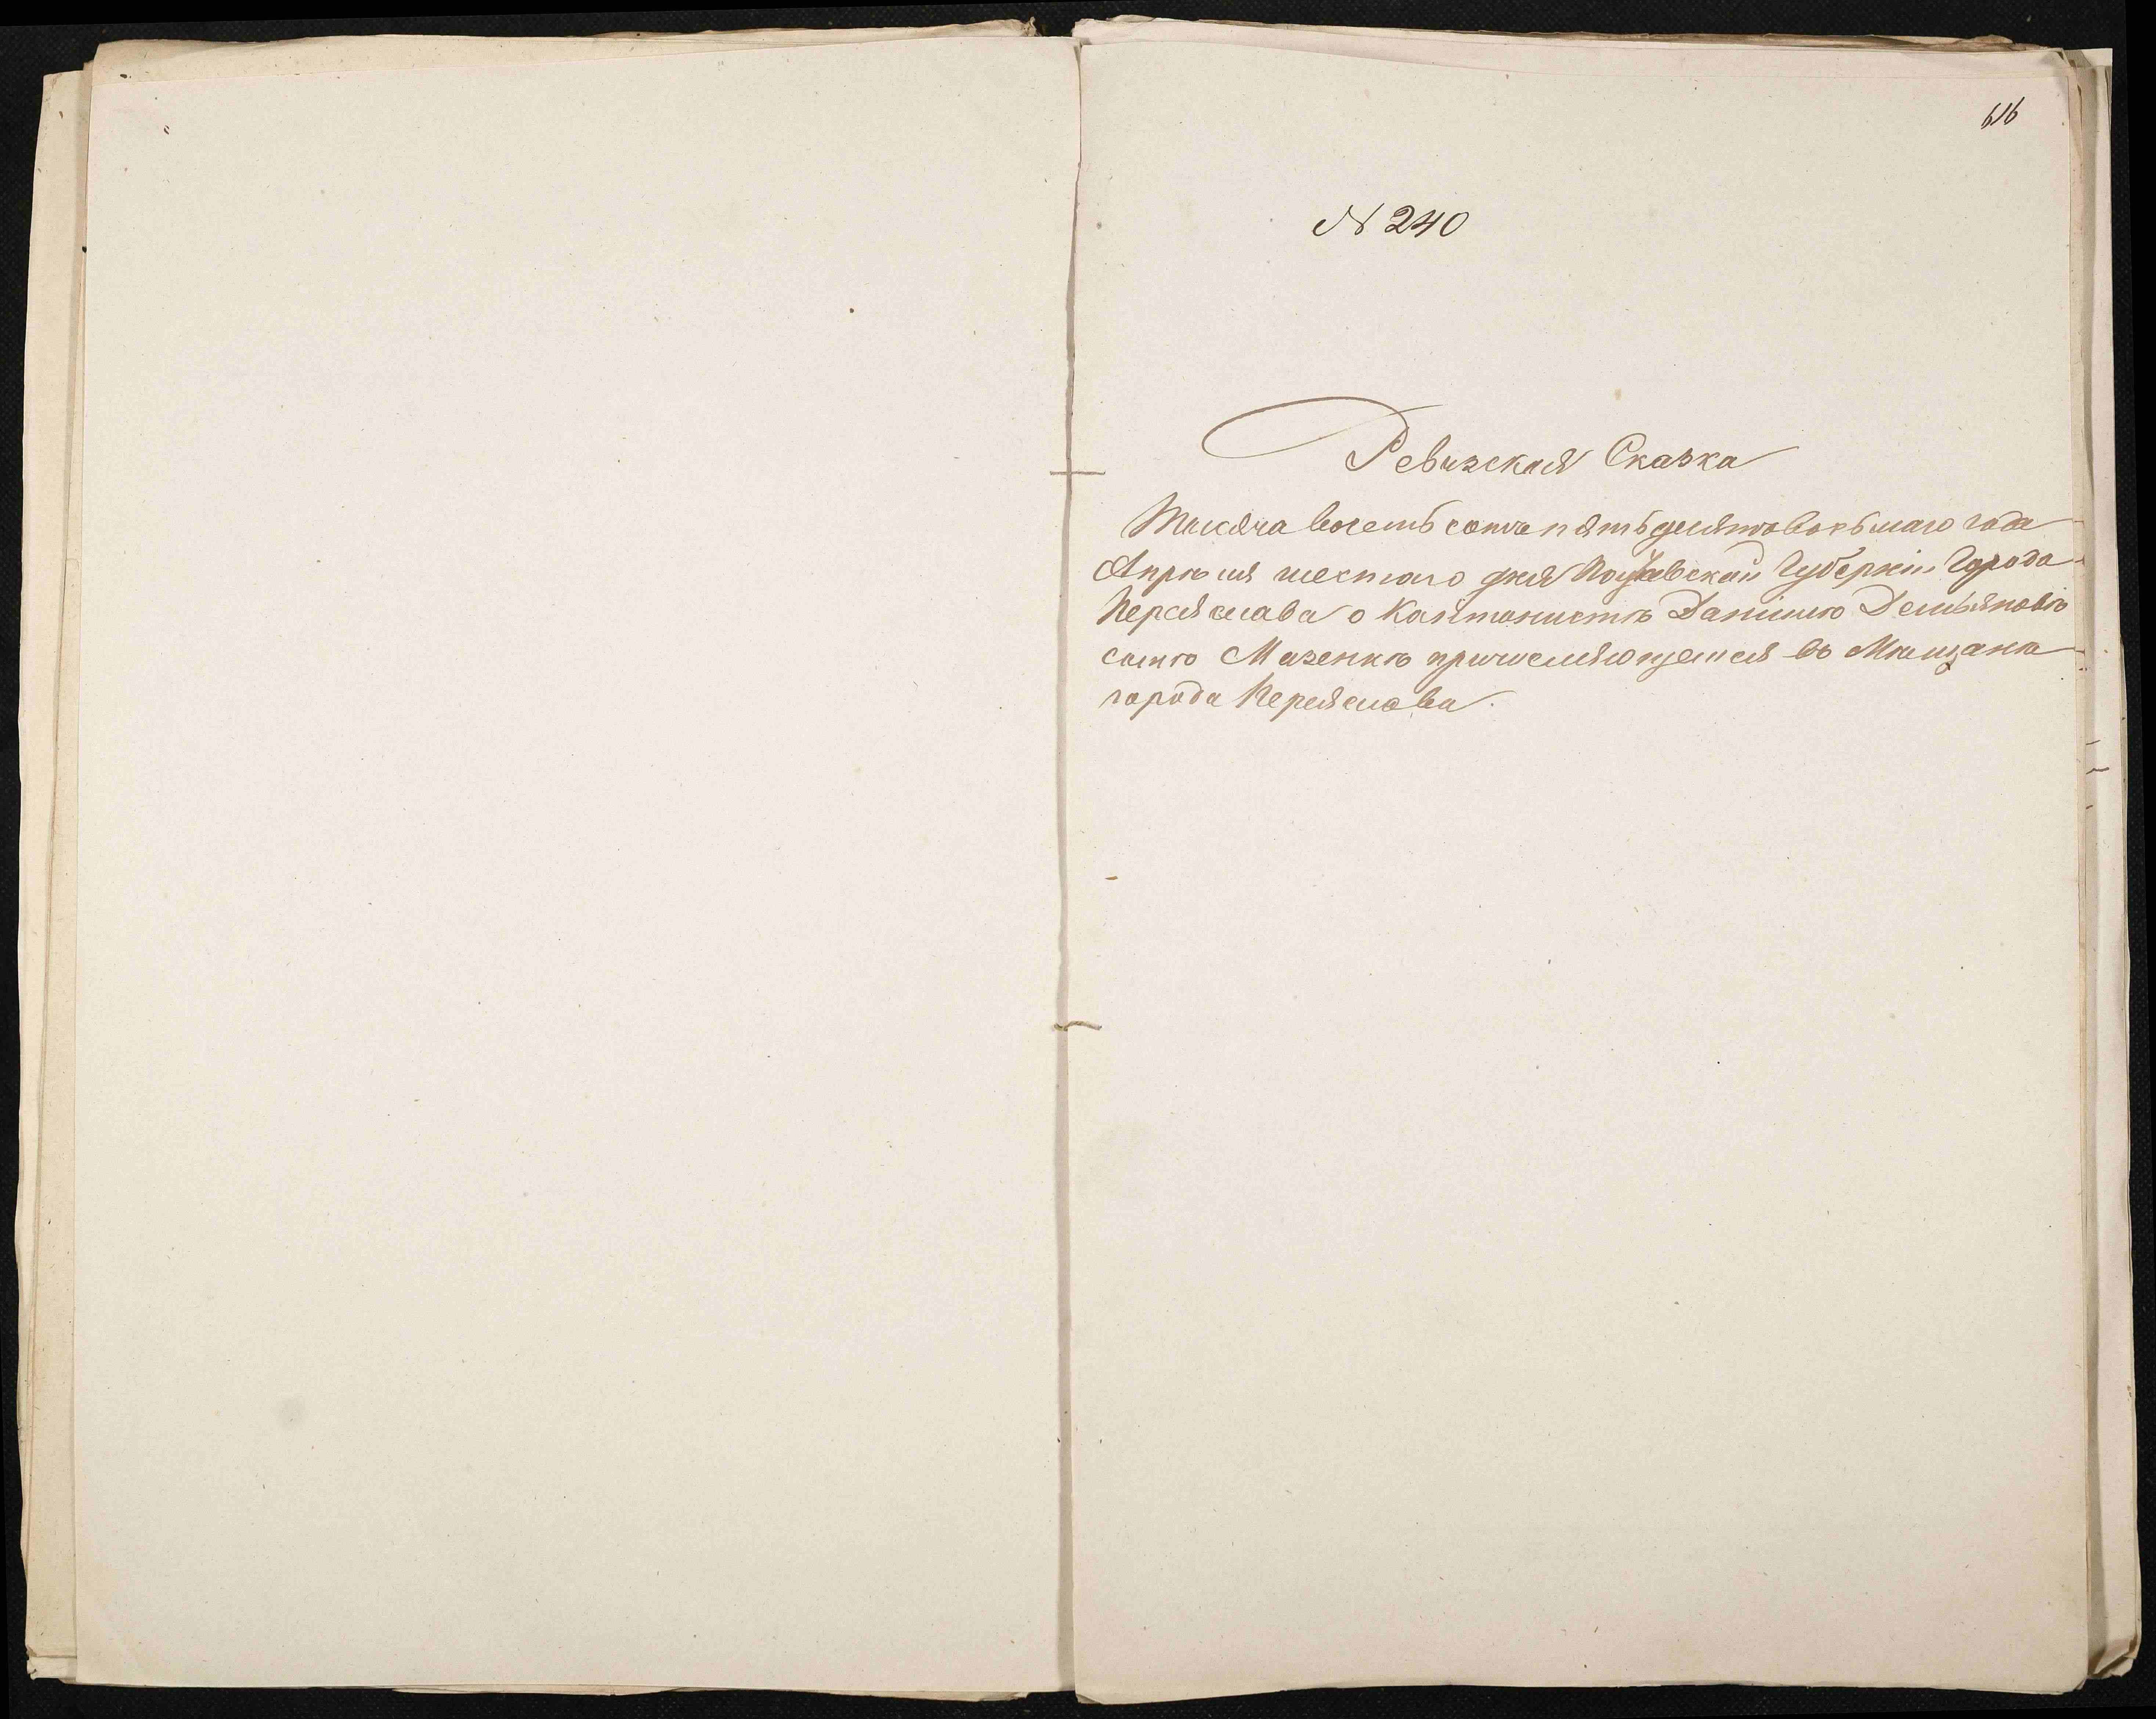 616
N 240
Ревизская Сказка
Тысяча восемь сотъ пятьдесятъ восьмаго года
Апрѣля шестаго дня Полтавской Губерніи Города
Переяслава о Кантонистѣ Даніилѣ Демьяновѣ
сынѣ Мизенкѣ причисляющемся въ Мѣщане
города Переяслава.